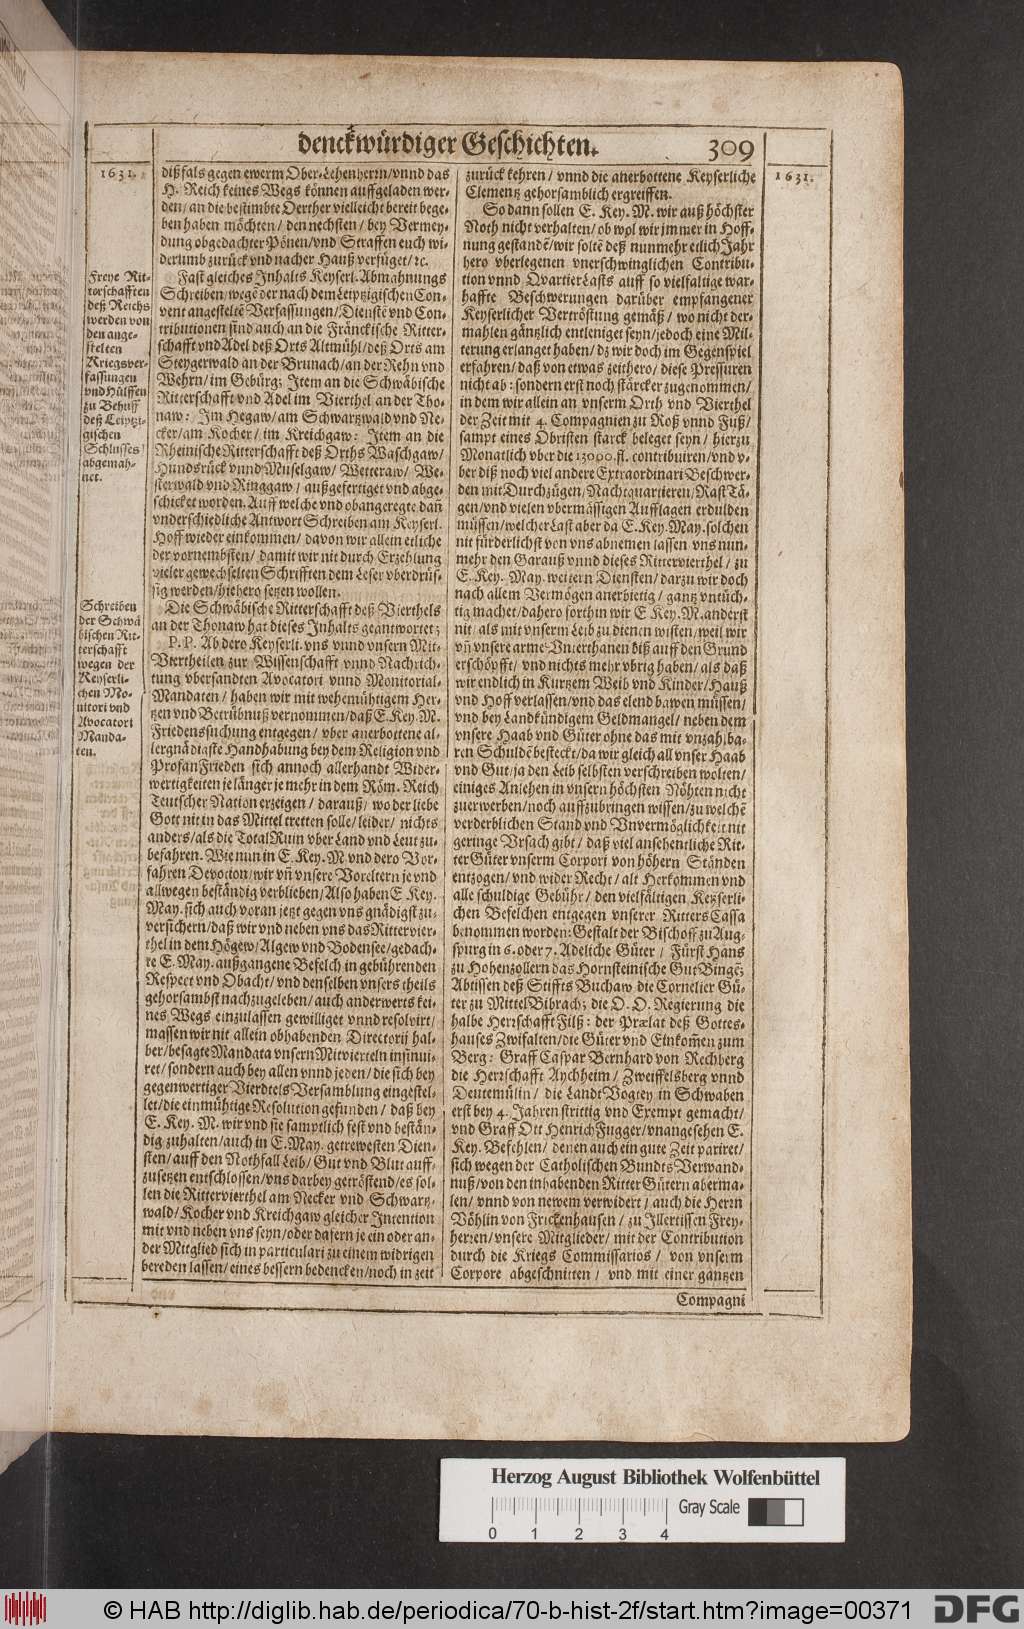 denckwürdiger Geschichten.
309
1631.
dißfals gegen ewerm Ober-Lehenherrn/vnnd das
H. Reich keines Wegs können auffgeladen wer-
den/ an die bestimbte Oerther vielleicht bereit bege-
ben haben möchten/ den nechsten/ bey Vermey-
dung obgedachter Pönen/vnd Straffen euch wi-
derumb zurück vnd nacher Hauß verfüget/ ꝛc.
Fast gleiches Inhalts Keyserl. Abmahnungs
Schreiben/wegē der nach dem Leipzigischen Con-
vent angesteltē Verfassungen/Dienstē vnd Con-
tributionen sind auch an die Fränckische Ritter-
schafft vnd Adel deß Orts Altmühl/deß Orts am
Steygerwald an der Brunach/an der Rehn vnd
Wehrn/im Gebürg; Item an die Schwäbische
Ritterschafft vnd Adel im Viertheil an der Tho-
naw: Im Hegaw/am Schwartzwald vnd Ne-
cker/am Kocher/ im Kreichgaw: Item an die
Rheinische Ritterschafft deß Orths Waschgaw/
Hundsrück vnnd Muselgaw/ Wetteraw/ We-
sterwald vnd Ringgaw/ außgefertiget vnd abge-
schicket worden. Auff welche vnd obangeregte dañ
vnderschiedliche Antwort Schreiben am Keyserl.
Hoff wieder einkommen/ davon wir allein etliche
der vornembsten/ damit wir nit durch Erzehlung
vieler gewechselten Schrifften dem Leser vberdrüs-
sig werden/hiehero setzen wollen.
Die Schwäbische Ritterschafft deß Vierthels
an der Thonaw hat dieses Inhalts geantwortet;
P. P. Ab dero Keyserli. vns vnnd vnsern Mit-
Viertheilen zur Wissenschafft vnnd Nachrich-
tung vbersandten Avocatori vnnd Monitorial-
Mandaten/ haben wir mit wehemühtigem Her-
tzen vnd Betrübnuß vernommen/daß E. Key. M.
Friedenssuchung entgegen/ vber anerbottene al-
lergnädigste Handhabung bey dem Religion vnd
Profan Frieden sich annoch allerhandt Wider-
wertigkeiten je länger je mehr in dem Röm. Reich
Teutscher Nation erzeigen/ darauß/ wo der liebe
Gott nit in das Mittel tretten solle/ leider/ nichts
anders/als die Total Ruin vber Land vnd Leut zu-
befahren. Wie nun in E. Key. M. vnd dero Vor-
fahren Devotion/wir vñ vnsere Voreltern je vnd
allwegen beständig verblieben/ Also haben E. Key.
May. sich auch voran jetzt gegen vns gnädigst zu-
versichern/daß wir vnd neben vns das Ritterviert-
thel in dem Högew/Algew vnd Bodensee/gedach-
te E. May. außgangene Befelch in gebührenden
Respect vnd Obacht/ vnd denselben vnsers theils
gehorsambst nachzugeleben/ auch anderwerts kei-
nes Wegs einzulassen gewilliget vnnd resolvirt/
massen wir nit allein obhabenden Directorij hal-
ber/besagte Mandata vnsern Mitvierteln insinui-
ret/ sondern auch bey allen vnnd jeden/ die sich bey
gegenwertiger Vierdtels Versamblung eingestel-
let/die einmühtige Resolution gefunden/ daß bey
E. Key. M. wir vnd sie samptlich fest vnd bestän-
dig zuhalten/auch in E. May. getrewesten Dien-
sten/ auff den Nothfall Leib/ Gut vnd Blut auff-
zusetzen entschlossen/vns darbey getröstend/es sol-
len die Rittervierthel am Necker vnd Schwartz-
wald/ Kocher vnd Kreichgaw gleicher Intention
mit vnd neben vns seyn/oder dafern je ein oder an-
der Mitglied sich in particulari zu einem widrigen
bereden lassen/eines bessern bedencken/noch in zeit
Freye Rit-
terschafften
deß Reichs
werden von
den ange-
stelten
Kriegsver-
fassungen
vnd Hülffen
zu Behuff
deß Leiptzi-
gischen
Schlusses
abgemah-
net.
Schreiben
der Schwä
bischen Rit-
terschafft
wegen der
Keyserli-
chen Mo-
nitori vnd
Avocatori
Manda-
ten.
1631.
zurück kehren/ vnnd die anerbottene Keyserliche
Clementz gehorsamblich ergreiffen.
So dann sollen E. Key. M. wir auß höchster
Noth nicht verhalten/ ob wol wir immer in Hoff-
nung gestandē/wir soltē deß nunmehr etlich Jahr
hero vberlegenen vnerschwinglichen Contribu-
tion vnnd Qvartier Lasts auff so vielfaltige war-
haffte Beschwerungen darüber empfangener
Keyserlicher Vertröstung gemäß/ wo nicht der-
mahlen gäntzlich entleniget seyn/jedoch eine Mil-
terung erlanget haben/ dz wir doch im Gegenspiel
erfahren/daß von etwas zeithero/ diese Pressuren
nicht ab: sondern erst noch stärcker zugenommen/
in dem wir allein an vnserm Orth vnd Vierthel
der Zeit mit 4. Compagnien zu Roß vnnd Fuß/
sampt eines Obristen starck beleget seyn/ hierzu
Monatlich vber die 13000. fl. contribuiren/vnd v-
ber diß noch viel andere Extraordinari Beschwer-
den mit Durchzügen/Nachtquartieren/Rast Tä-
gen/vnd vielen vbermässigen Aufflagen erdulden
müssen/welcher Last aber da E. Key. May. solchen
nit fürderlichst von vns abnemen lassen vns nun-
mehr den Garauß vnnd dieses Rittervierthel/ zu
E. Key. May. weitern Diensten/ darzu wir doch
nach allem Vermögen anerbietig/ gantz vntüch-
tig machet/dahero forthin wir E Key. M. anderst
nit/ als mit vnserm Leib zu dienen wissten/weil wir
vñ vnsere arme Vnterthanen biß auff den Grund
erschöpfft/ vnd nichts mehr vbrig haben/ als daß
wir endlich in Kurtzem Weib vnd Kinder/Hauß
vnd Hoff verlassen/vnd das elend bawen müssen/
vnd bey Landkündigem Geldmangel/ neben dem
vnsere Haab vnd Güter ohne das mit vnzahlba-
ren Schuldē besteckt/da wir gleich all vnser Haab
vnd Gut/ja den Leib selbsten verschreiben wolten/
einiges Anlehen in vnsern höchsten Nöhten nicht
zuerwerben/noch auffzubringen wissen/zu welchē
verderblichen Stand vnd Vnvermöglichkeit nit
geringe Vrsach gibt/ daß viel ansehentliche Rit-
ter Güter vnserm Corpori von höhern Ständen
entzogen/ vnd wider Recht/ alt Herkommen vnd
alle schuldige Gebühr/ den vielfältigen Keyserli-
chen Befelchen entgegen vnserer Ritters Cassa
benommen worden: Gestalt der Bischoff zu Aug-
spurg in 6. oder 7. Adeliche Güter/ Fürst Hans
zu Hohenzollern das Hornsteinische Gut Bingē;
Abtissen deß Stiffts Buchaw die Cornelier Gü-
ter zu Mittel Bibrach; die O. O. Regierung die
halbe Herrschafft Filß: der Prælat deß Gottes-
hauses Zwifalten/die Güter vnd Einkom̃en zum
Berg: Graff Caspar Bernhard von Rechberg
die Herrschafft Aychheim/ Zweiffelsberg vnnd
Deutemülin/ die Landt Vogtey in Schwaben
erst bey 4. Jahren strittig vnd Exempt gemacht/
vnd Graff Ott Henrich Fugger/vnangesehen E.
Key. Befehlen/ denen auch ein gute Zeit pariret/
sich wegen der Catholischen Bundts Verwand-
nuß/von den inhabenden Ritter Gütern aberma-
len/ vnnd von newem verwidert/ auch die Herrn
Vöhlin von Frickenhausen/ zu Illertissen Frey-
herren/vnsere Mitglieder/ mit der Contribution
durch die Kriegs Commissarios/ von vnserm
Corpore abgeschnitten/ vnd mit einer gantzen
Compagni
Herzog August Bibliothek Wolfenbüttel
Gray Scale
0 1 2 3 4
© HAB http://diglib.hab.de/periodica/70-b-hist-2f/start.htm?image=00371
DFG